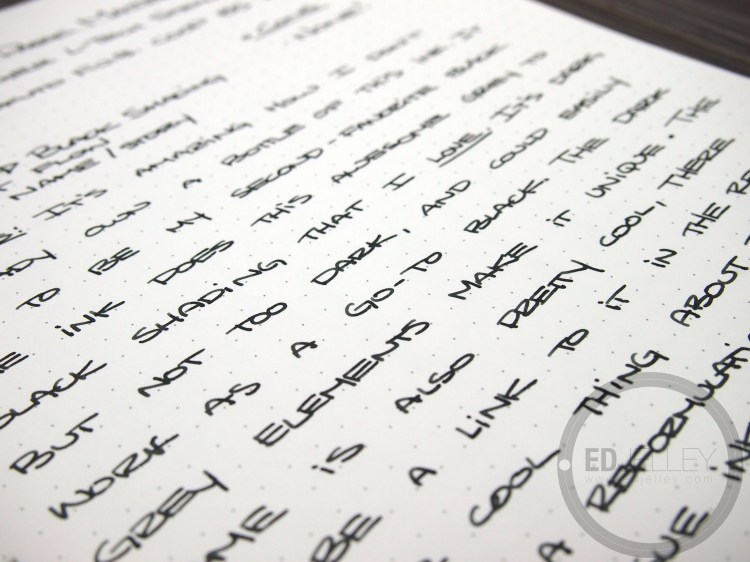 BLACK SHADING
FLOW
NAME/STORY
IT'S AMAZING HOW I DON'T
ADY OWN A BOTTLE OF THIS INK. IT
TO BE MY SECOND-FAVORITE BLACK
E INK DOES THIS AWESOME GREY TO
BLACK SHADING THAT I LOVE. IT'S DARK
BUT NOT TOO DARK, AND COULD EASILY
WORK AS A GO-TO BLACK. THE DARK
GREY ELEMENTS MAKE IT UNIQUE. THE
ME IS ALSO PRETTY COOL, THERE
BE A LINK TO IT IN THE RE
COOL THING ABOUT
A REFORMULATI
UE INK
ED JELLEY
www.edjelley.com